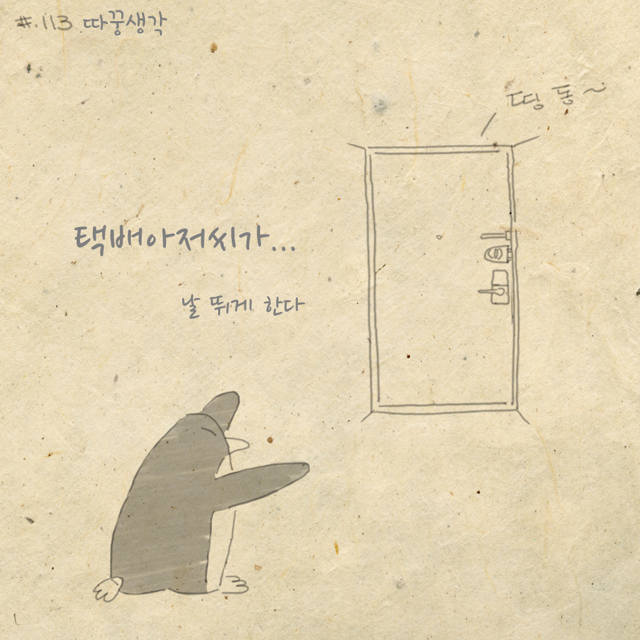 #.113 따꿍생각
띵동~
택배아저씨가...
날 뛰게 한다